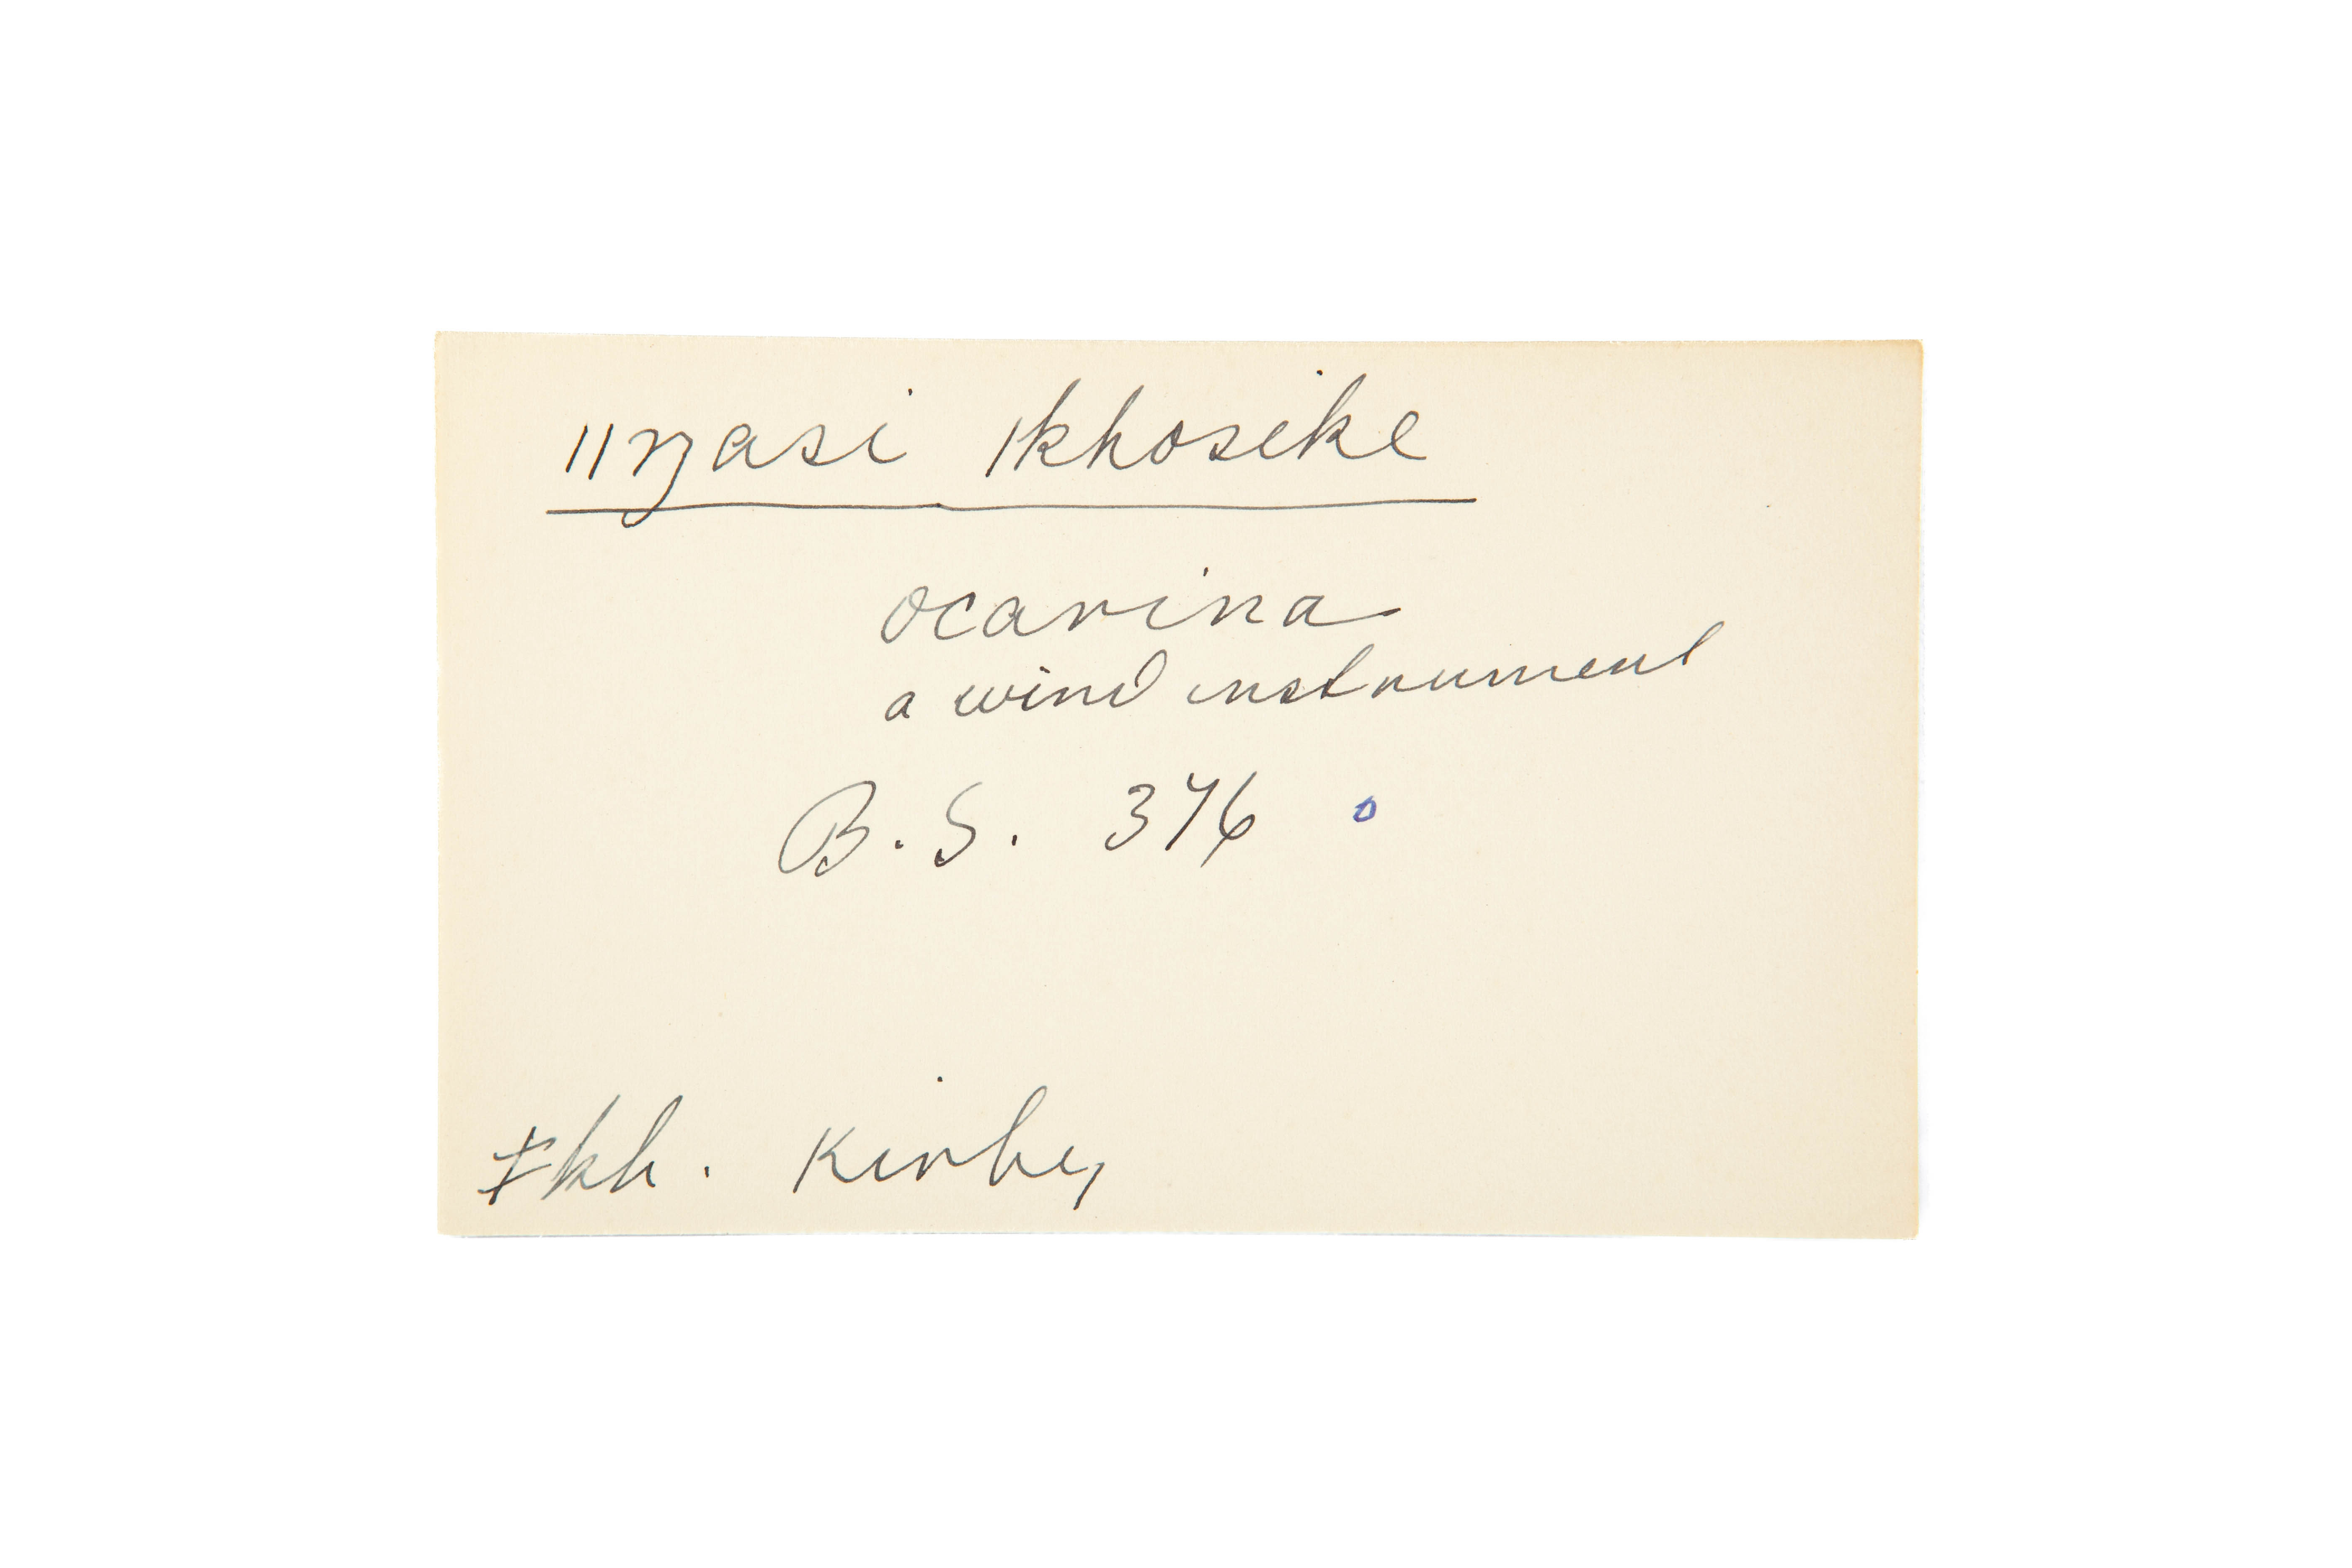 ǁŋasi ǀkhosike
ocarina
a wind instrument
B.S. 376 o
ǂkh. Kirby